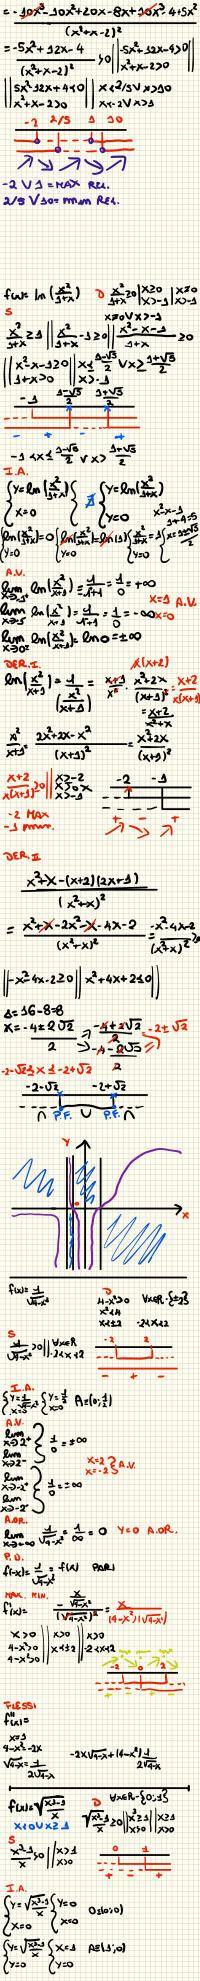 = -10x³-10x²+20x-8x+10x²-4+5x²
(x²+x-2)²
= -5x²+12x-4 / (x²+x-2)² >0 || -5x²-12x-4>0 || x²+x-2>0
|| 5x²-12x+4<0 || x²+x-2>0 || x<2/5 V x>10 x<-2 V x>1
-2 2/5 1 10
-2 V 1 = MAX REL.
2/5 V 10 = min REL.
f(x) = ln (x²/1+x) D x²/1+x >0 | x≥0 x>-1 | x≠0 x>-1
x≠0 V x>-1
S
x²/1+x ≥1 || x²/1+x -1≥0 || x²-x-1/1+x ≥0
|| x²-x-1≥0 1+x>0 || x≤ 1-√5/2 V x≥ 1+√5/2 x>-1
-1 1-√5/2 1+√5/2
- + - +
-1<x≤ 1-√5/2 V x> 1+√5/2
I.A.
{ y=ln(x²/1+x) x=0 ∄ { y=ln(x²/1+x) y=0
x²-x-1
1+4=5
ln(x²/1+x)=0 y=0 { ln(x²/x+1)=ln(1) y=0 { x²/x+1=1 y=0 { x=1±√5/2
A.V.
lim ln(x²/x+1) = 1/-1+1 = 1/0 = +∞
lim ln(x²/x+1) = 1/-1+1 = 1/0 = -∞ x=1 x=0 A.V.
lim ln(x²/x+1) = ln0 = ±∞
DER.I.
ln(x²/x+1) = 1/(x²/x+1) = x+1/x² · x²+2x/(x+1)² = x+2/x(x+1)
= x+2/x²+x
x²/x+1 = 2x²+2x-x²/(x+1)² = x²+2x/(x+1)²
x+2/x(x+1) ≥0 || x>-2 x>0 x>-1
-2 -1
-2 MAX
-1 min.
DER. II
x²+x-(x+2)(2x+1)
(x²+x)²
= x²+x-2x²-x-4x-2 / (x²+x)² = -x²-4x-2 / (x²+x)² ≥0
|| -x²-4x-2≥0 || x²+4x+2≤0 ||
Δ=16-8=8
x= -4±2√2 / 2 -4+2√2 / 2 -4-2√2 / 2 = -2±√2
-2-√2≤x≤-2+√2
-2-√2 -2+√2
∩ P.F. ∪ P.F. ∩
Y
X
f(x)= 1/√4-x² D 4-x²>0 ∀x∈R-{±2}
x²<4
x<±2 -2<x<2
S
1/√4-x² >0 || ∀x∈R -2<x<2
-2 2
- + -
I.A.
{ y=1/√4-x² x=0 { y=1/2 x=0 A=(0;1/2)
A.V.
lim x→2⁺
lim x→2⁻ 1/0 = ±∞
x=2 x=-2 } A.V.
lim x→-2⁺
lim x→-2⁻ 1/0 = ±∞
A.OR.
lim x→+∞ 1/√4-x² = 1/∞ = 0 y=0 A.OR.
P.D.
f(-x)= 1/√4-x² = f(x) PARI
MAX. MIN.
f'(x)= x/√4-x² / (√4-x²)² = x/(4-x²)(√4-x²)
x>0 4-x²>0 4-x²>0 || x>0 x<±2 || x>0 -2<x<2
-2 0 2
FLESSI
f''(x)=
x=1
4-x²=-2x
√4-x²= 1/2√4-x² -2x√4-x²+(4-x²) 1/2√4-x²
f(x)=√x²-1/x D ∀x∈R-{0;1}
x<0 V x≥1
S
0 1
I.A.
{ y=√x²-1/x x=0 { y=0 x=0 O≡(0;0)
{ y=√x²-1/x y=0 { x=1 y=0 A≡(1;0)